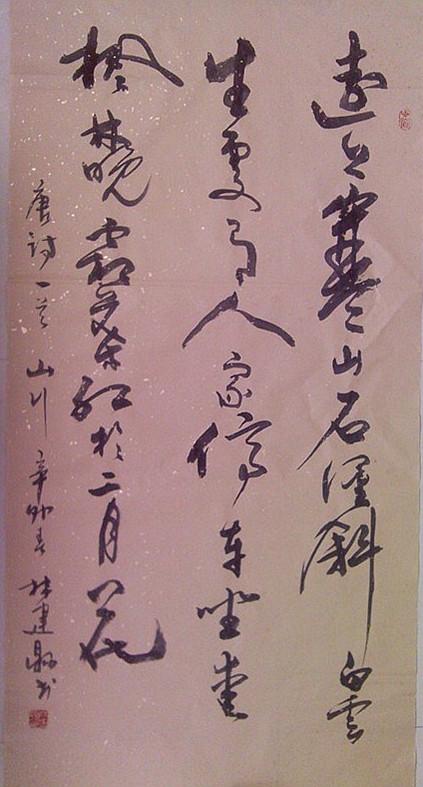 遠上寒山石徑斜白雲
生處有人家停車坐愛
楓林晚霜葉紅於二月花
唐詩一首山行辛卯春林建書